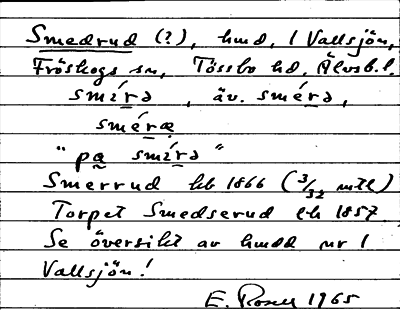 Smedrud (?), hmd, i Vallsjön,
Fröskogs sn, Tössbo hd, Älvsb. l.
smi´rə , äv. sme´rə,
sme´ræ
"pa smi´rə"
Smerrud kb 1866 (3/32 mtl)
Torpet Smedserud ek 1857
Se översikt av hmdd nr 1
Vallsjön!
E. 1965